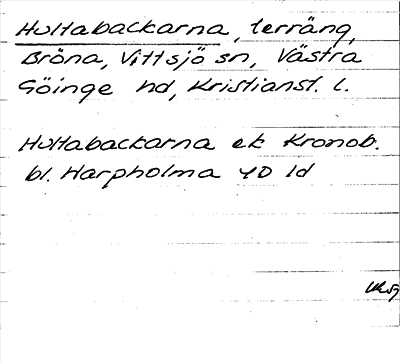 Hultabackarna, terräng,
Bröna, Vittsjö sn, Västra
Göinge hd, Kristianst. l.
Hultabackarna ek Kronob.
bl. Harpholma 4D 1d